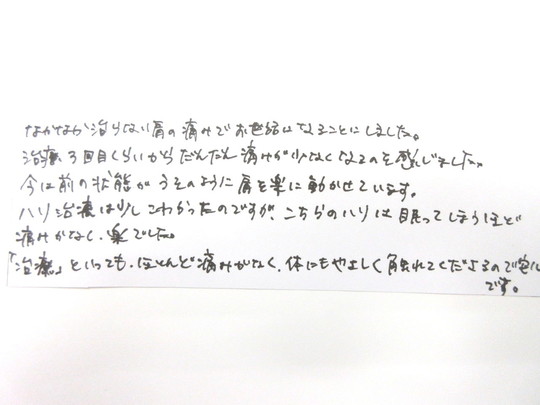 なかなか治らない肩の痛みでお世話になることにしました。
治療3回目くらいからだんだん痛みが少なくなるのを感じました。
今は前の状態がうそのように肩を楽に動かせています。
ハリ治療は少しこわかったのですが、こちらのハリは眠ってしまうほど
痛みがなく、楽でした。
「治療」といっても、ほとんど痛みがなく、体にもやさしく触れてくださるので
です。